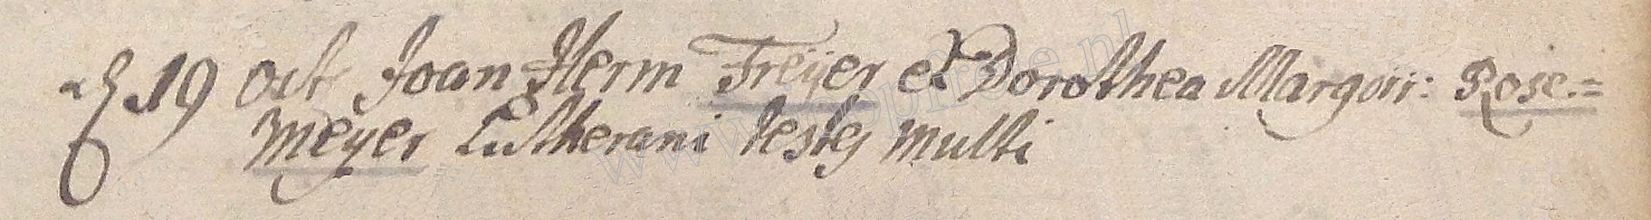 19 oct Joan Herm Freÿer et Dorothea Margar: Rose.=
Meÿer Lutherani testes multi